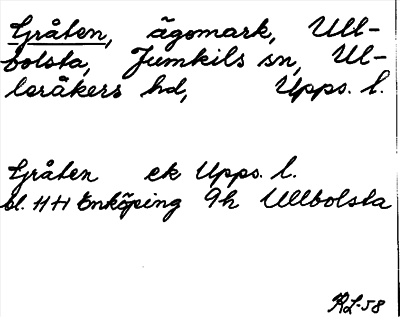 Gråten, ägomark, Ull-
bolsta, Jumkils sn, Ul-
leråkers hd, Upps. l.
Gråten ek Upps. l.
bl. 11 H Enköping 9h Ullbolsta
RL-58